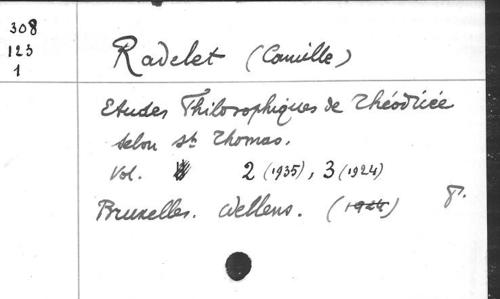 308
123
1
Radelet (Camille)
Etudes Philosophiques de Théodicée
selon St Thomas.
Vol. 2 (1935), 3 (1924)
Bruxelles. Wellens. (1924) 8°.